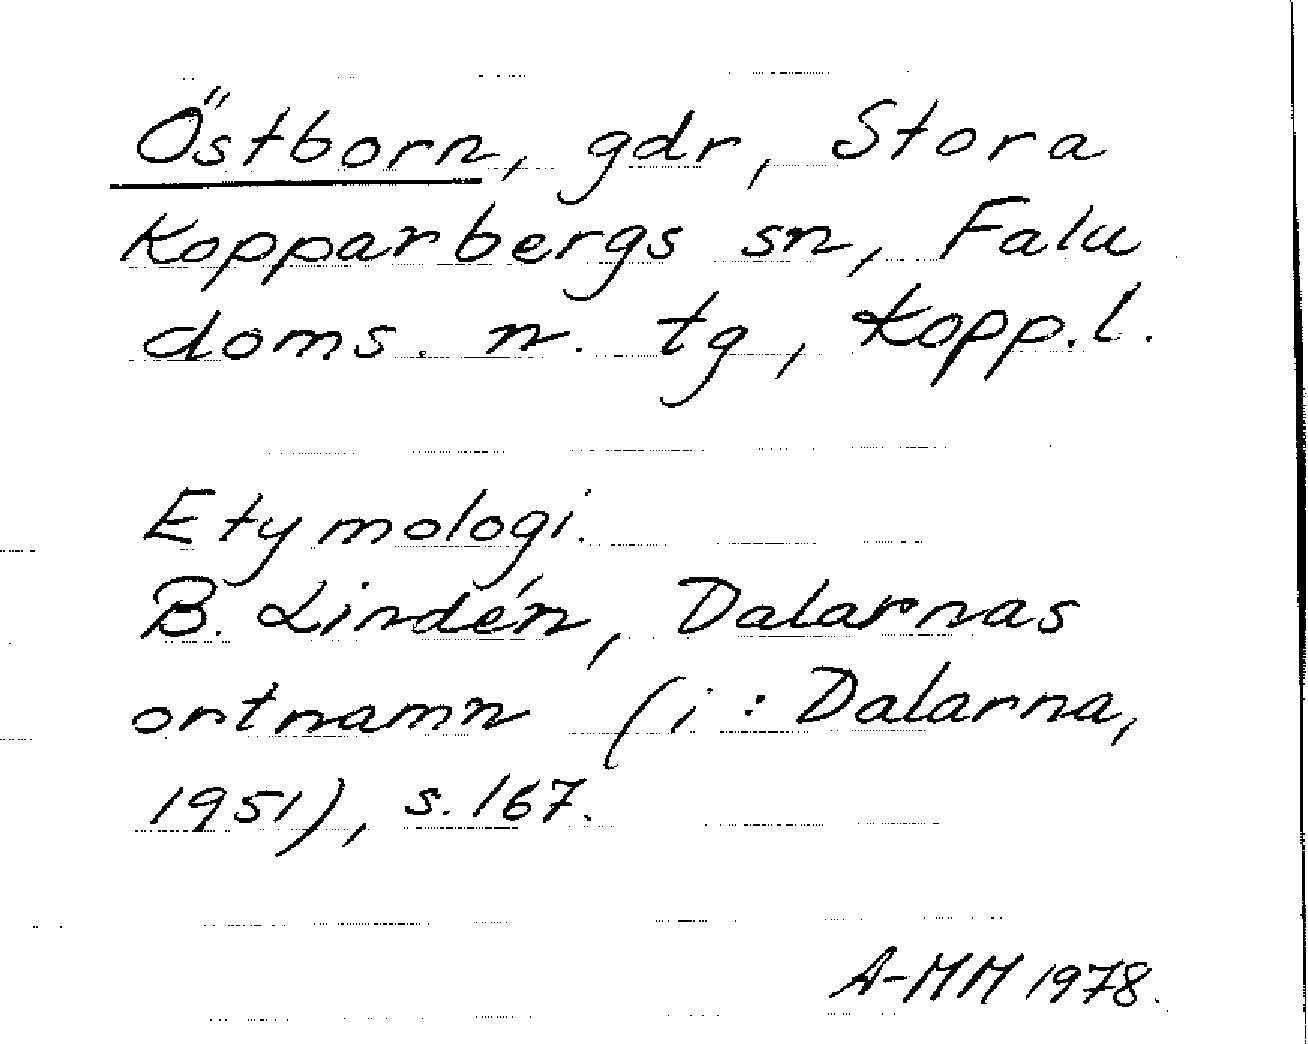 Östborn, gdr, Stora
Kopparbergs sn, Falu
doms. n. tg, Kopp.l.
Etymologi.
B. Lindén, Dalarnas
ortnamn (i: Dalarna,
1951), s. 167.
A-MM 1978.